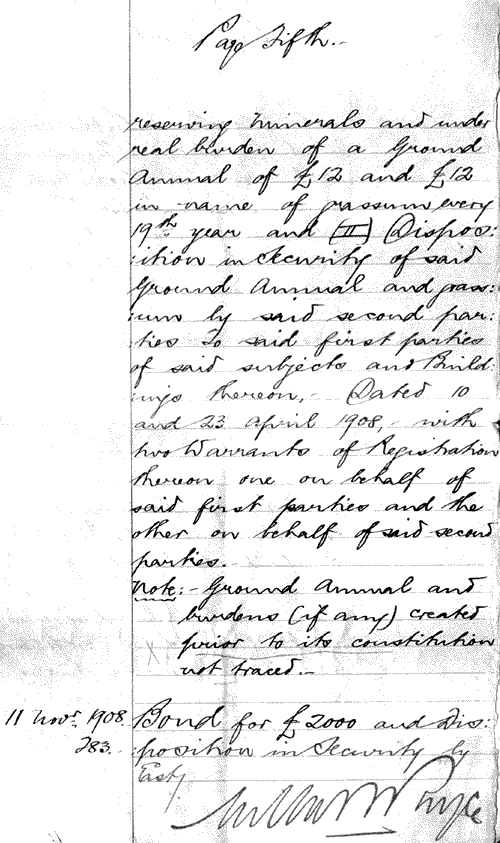 Page Fifth.-
reserving minerals and under
real burden of a Ground
Annual of £12 and £12
in name of grassum every
19th year and (II) Dispos:
:ition in Security of said
Ground Annual and grass:
:um by said second par:
:ties to said first parties
of said subjects and Build:
:ings thereon,- Dated 10
and 23 April 1908,- with
two Warrants of Registration
thereon one on behalf of
said first parties and the
other on behalf of said second
parties.
Note:- Ground Annual and
burdens (if any) created
prior to its constitution
not traced.-
11 Novr. 1908. Bond for £2000 and Dis:
283. :position in Security by